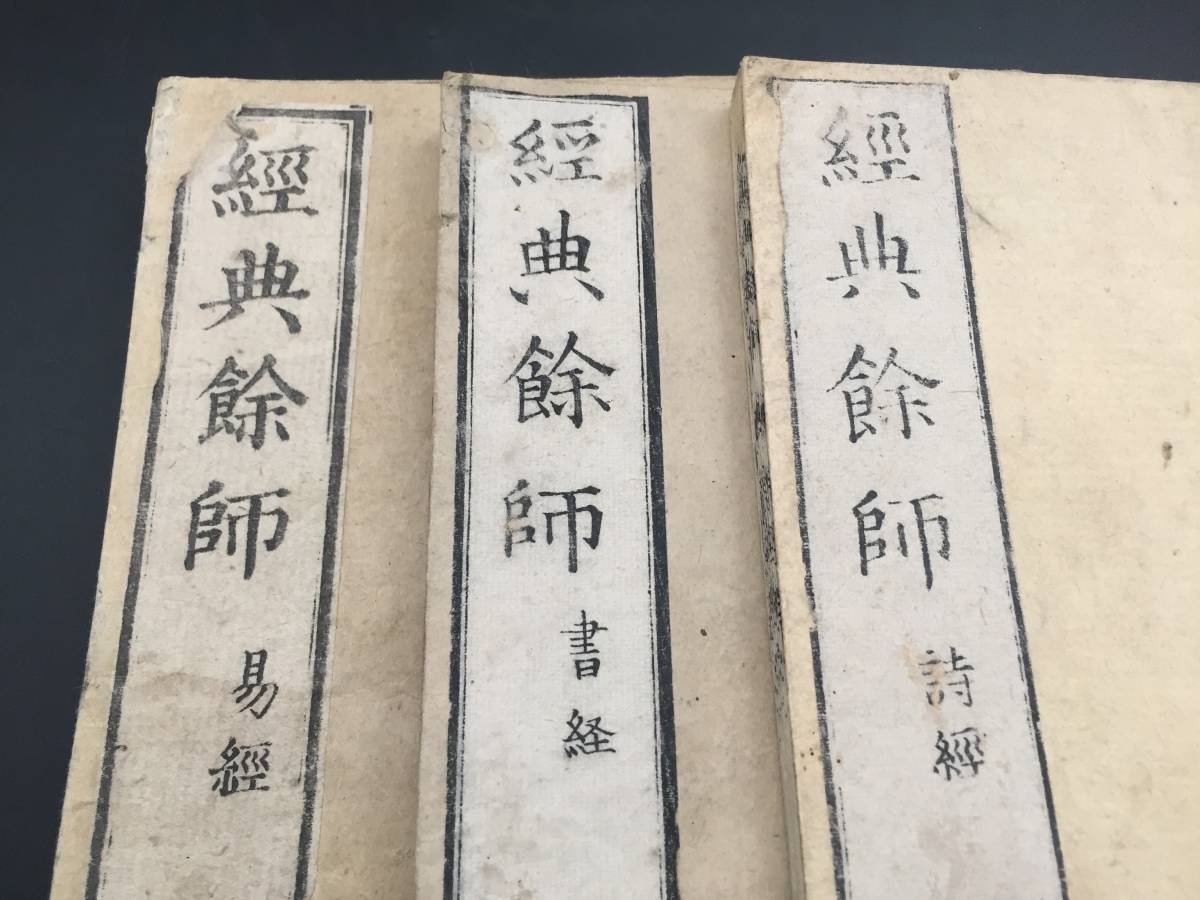 經典餘師 易經
經典餘師 書経
經典餘師 詩經